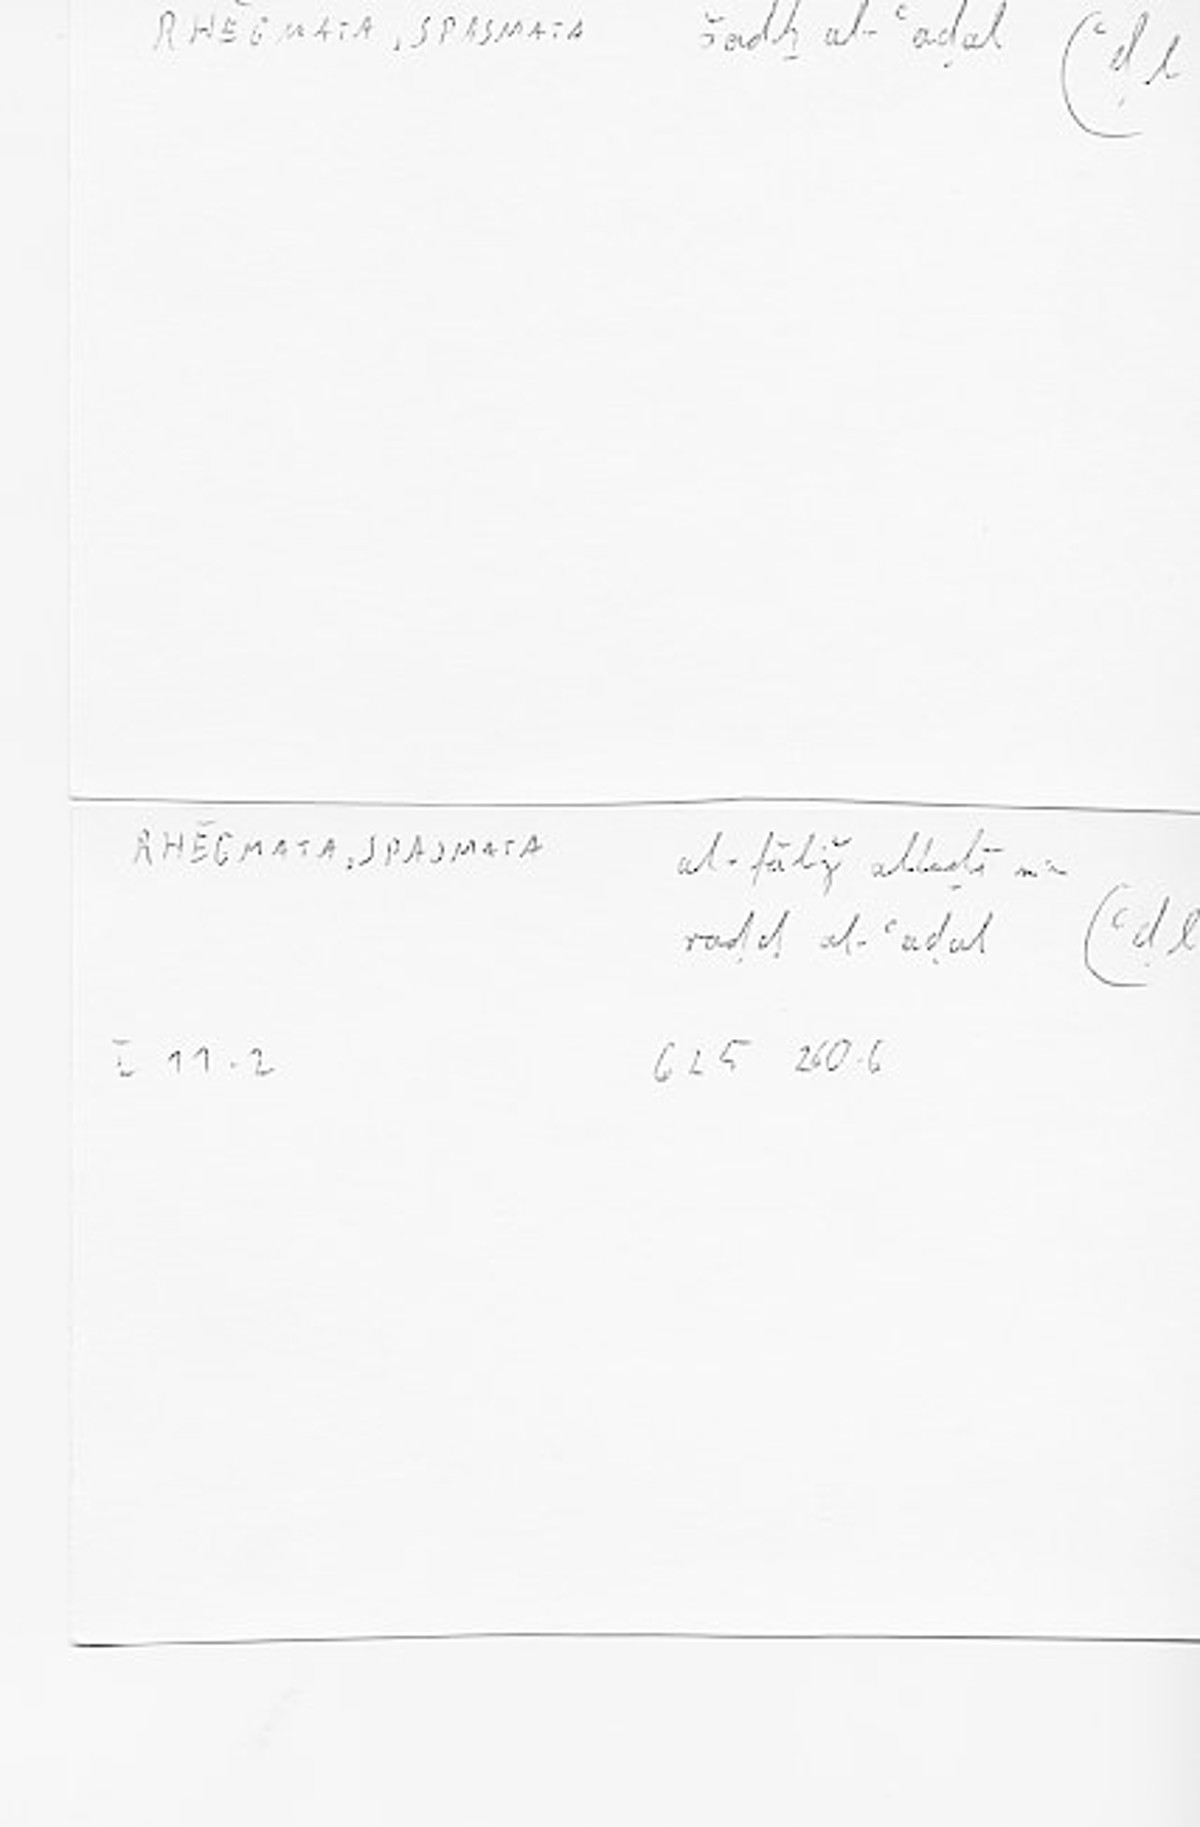 RHĒGMATA, SPASMATA šadḫ al-ʿaḍal (ʿḍl
RHĒGMATA, SPASMATA al-fāliǧ allaḏī min
raḍḍ al-ʿaḍal (ʿḍl
I 11.2 625 260.6